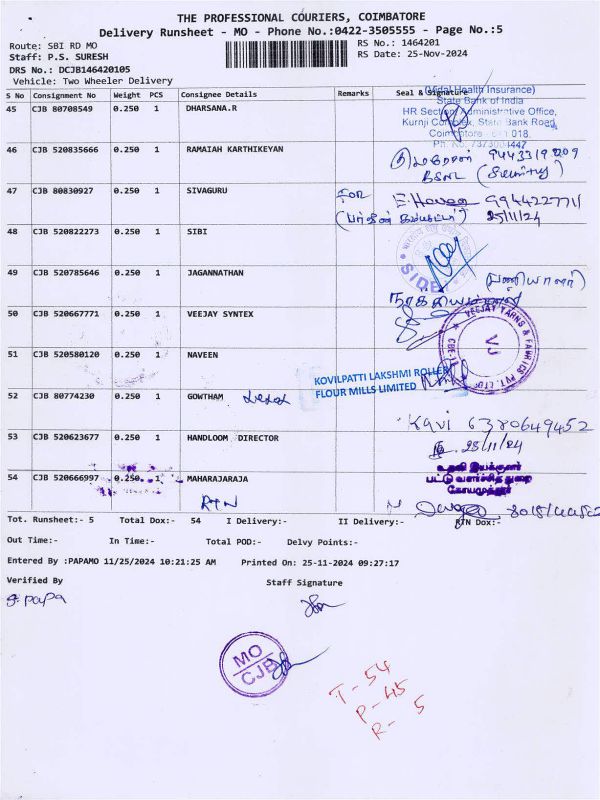 THE PROFESSIONAL COURIERS, COIMBATORE
Delivery Runsheet - MO - Phone No.:0422-3505555 - Page No.:5
Route: SBI RD MO
RS No.: 1464201
Staff: P.S. SURESH
RS Date: 25-Nov-2024
DRS No.: DCJB146420105
Vehicle: Two Wheeler Delivery
S No Consignment No Weight PCS Consignee Details Remarks Seal & Signature
(Vidal Health Insurance)
45 CJB 80708549 0.250 1 DHARSANA.R
State Bank of India
HR Section, Administrative Office,
Kurnji Complex, State Bank Road,
Coimbatore - 641 018.
46 CJB 520835666 0.250 1 RAMAIAH KARTHIKEYAN
47 CJB 80830927 0.250 1 SIVAGURU
For
9944227711
25/11/24
48 CJB 520822273 0.250 1 SIBI
49 CJB 520785646 0.250 1 JAGANNATHAN
50 CJB 520667771 0.250 1 VEEJAY SYNTEX
VEEJAY YARNS & FABRICS PVT. LTD.
VJ
51 CJB 520580120 0.250 1 NAVEEN
KOVILPATTI LAKSHMI ROLLER
FLOUR MILLS LIMITED
52 CJB 80774230 0.250 1 GOWTHAM
Kavi 6380649452
53 CJB 520623677 0.250 1 HANDLOOM DIRECTOR
உதவி இயக்குனர்
பட்டு வளர்ச்சித்துறை
கோயமுத்தூர்
54 CJB 520666997 0.250 1 MAHARAJARAJA
RTN
Tot. Runsheet:- 5 Total Dox:- 54 I Delivery:- II Delivery:- RTN Dox:-
Out Time:- In Time:- Total POD:- Delvy Points:-
Entered By :PAPAMO 11/25/2024 10:21:25 AM Printed On: 25-11-2024 09:27:17
Verified By Staff Signature
S. papa
MO
CJB
T - 54
P - 45
R - 5